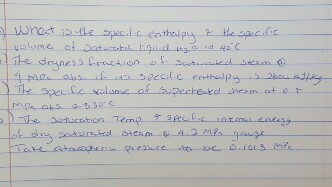 ) What is the specific enthalpy & the specific
volume of saturated liquid H2O at 40°C
) The dryness fraction of saturated steam @
4 MPa abs if its specific enthalpy is 2600 kJ/kg
) The specific volume of superheated steam at 0.5
MPa abs & 330°C
) The saturation Temp & specific internal energy
of dry saturated steam @ 4.2 MPa gauge
Take atmospheric pressure to be 0.1013 MPa